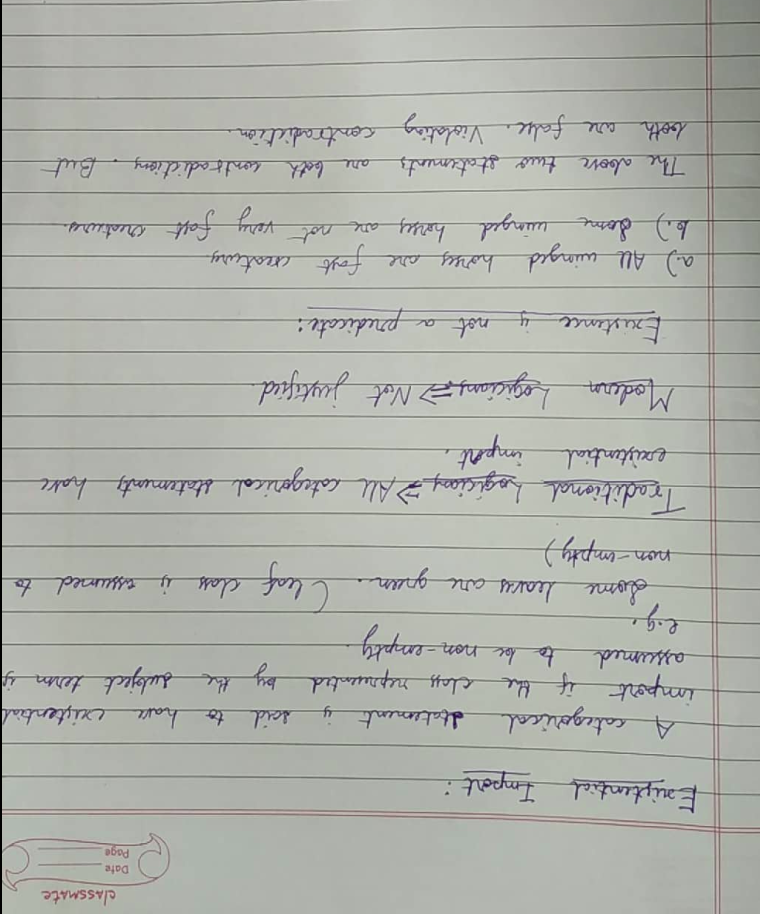 classmate
Date
Page
Existential Import:
A categorical statement is said to have existential
import if the class represented by the subject term is
assumed to be non-empty.
e.g.
Some leaves are green. (leaf class is assumed to
non-empty)
Traditional Logicians ⇒ All categorical statements have
existential import.
Modern Logicians ⇒ Not justified.
Existence is not a predicate:
a.) All winged horses are fast creatures.
b.) Some winged horses are not very fast creatures.
The above two statements are both contradictions. But
both are false. Violating contradiction.